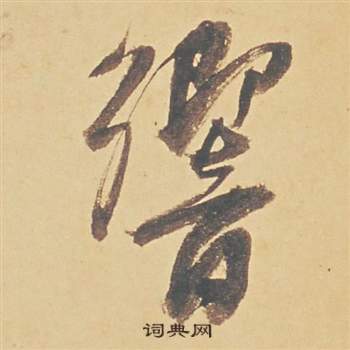 響
词典网